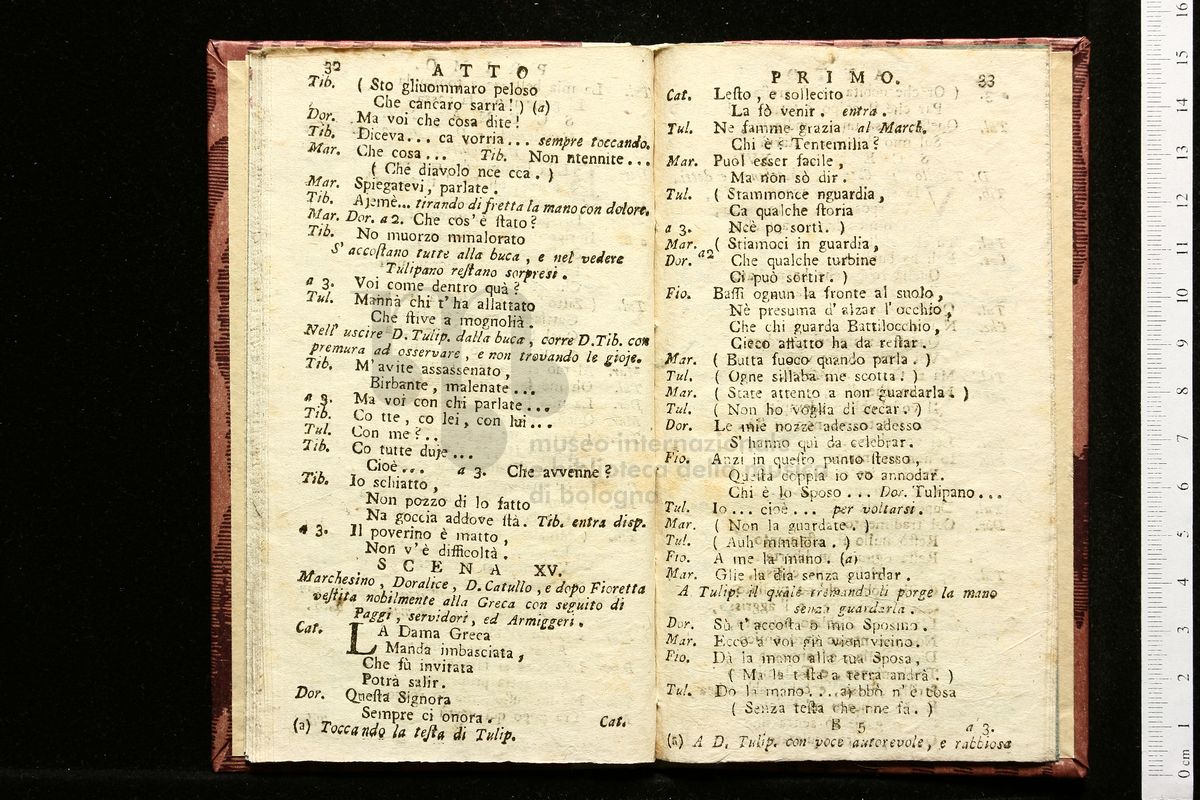 32 ATTO
Tib. ( Sto gliuommaro peloso
Che cancaro sarrà! ) (a)
Dor. Ma voi che cosa dite!
Tib. Diceva... ca vorria... sempre toccando.
Mar. Che cosa... Tib. Non ntennite...
( Che diavolo nce cca. )
Mar. Spiegatevi, parlate.
Tib. Ajemè... tirando di fretta la mano con dolore.
Mar. Dor. a 2. Che cos'è ſtato?
Tib. No muorzo mmalorato
S'accoſtano tutte alla buca, e nel vedere
Tulipano reſtano sorpresi.
a 3. Voi come dentro quà?
Tul. Manna chi t'ha allattato
Che ſtive a mognolià.
Nell'uscire D. Tulip. dalla buca, corre D. Tib. con
premura ad osservare, e non trovando le gioje.
Tib. M'avite assassenato,
Birbante, malenate...
a 3. Ma voi con chi parlate...
Tib. Co tte, co lei, con lui...
Tul. Con me?..
Tib. Co tutte duje...
Cioè... a 3. Che avvenne?
Tib. Io schiatto,
Non pozzo di lo fatto
Na goccia addove ſtà. Tib. entra disp.
a 3. Il poverino è matto,
Non v'è difficoltà.
SCENA XV.
Marchesino, Doralice, D. Catullo, e dopo Fioretta
veſtita nobilmente alla Greca con seguito di
Paggi, servidori, ed Armiggeri.
Cat. LA Dama Greca
Manda imbasciata,
Che fù invitata
Potrà salir.
Dor. Queſta Signora
Sempre ci onora. Cat.
(a) Toccando la teſta di Tulip.
PRIMO. 33
Cat. Leſto, e sollecito
La fò venir. entra.
Tul. Ne famme grazia al March.
Chi è? Tentemilia?
Mar. Puol esser facile,
Ma non sò dir.
Tul. ( Stammonce nguardia,
Ca qualche ſtoria
a 3. Ncè po sortì. )
Mar. ( Stiamoci in guardia,
Dor. a2 Che qualche turbine
Ci può sortir. )
Fio. Bassi ognun la fronte al suolo,
Nè presuma d'alzar l'occhio,
Che chi guarda Battilocchio,
Cieco affatto ha da reſtar.
Mar. ( Butta fuoco quando parla. )
Tul. ( Ogne sillaba me scotta. )
Mar. ( State attento a non guardarla. )
Tul. ( Non ho voglia di cecar. )
Dor. Le mie nozze adesso adesso
S'hanno quì da celebrar.
Fio. Anzi in queſto punto ſtesso,
Queſta coppia io vo annodar.
Chi è lo Sposo... Dor. Tulipano...
Tul. Io... cioè... per voltarsi.
Mar. ( Non la guardate. )
Tul. ( Auh mmalora. )
Fio. A me la mano. (a)
Mar. Glie la dia senza guardar.
A Tulip. il quale tremando li porge la mano
senza guardarla.
Dor. Sù t'accoſta o mio Sposino.
Mar. Ecco a voi già vien vicino.
Fio. Dà la mano alla tua Sposa,
( Ma la teſta a terra andrà. )
Tul. Do la mano... a bbò n'è cosa
( Senza teſta che nne fa. )
B 5 a 3.
(a) A D. Tulip. con voce autorevole, e rabbiosa
museo internazionale
e biblioteca della musica
di bologna
16
15
14
13
12
11
10
9
8
7
6
5
4
3
2
1
0 cm